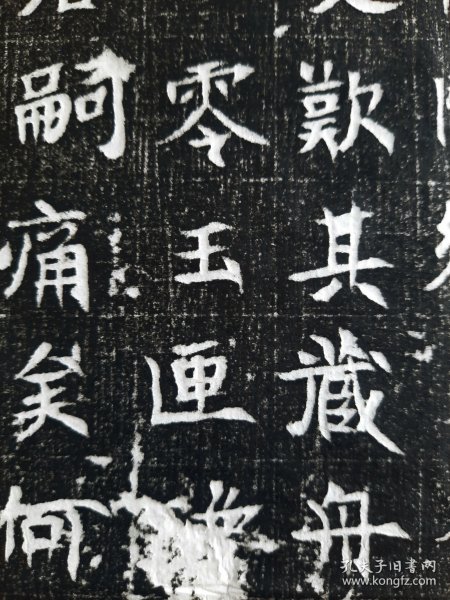 歎其藏舟
零玉匣
嗣痛矣何
孔夫子旧书网
www.kongfz.com